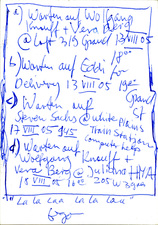 a) Warten auf Wolfgang
Knauff + Vera Berg
@ Loft 319 Grand 13 VIII 05
b) Warten auf Eddi for
Delivery 13 VIII 05
c) Warten auf Grand St
Steven Sachs @ White Plains
17 VIII 05 945 Train Station
Computer help
d) Warten auf
Wolfgang Knauff +
Vera Berg @ Juliana HYA
18 VIII 05 205 W 39
"La la laa la la laa"